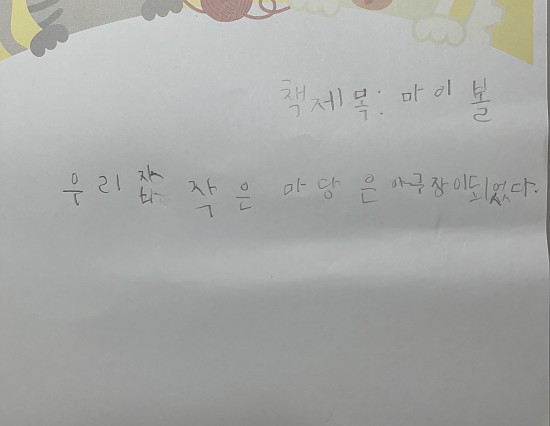 책제목: 마이볼
우리 작은 마당은 야구장이되었다.